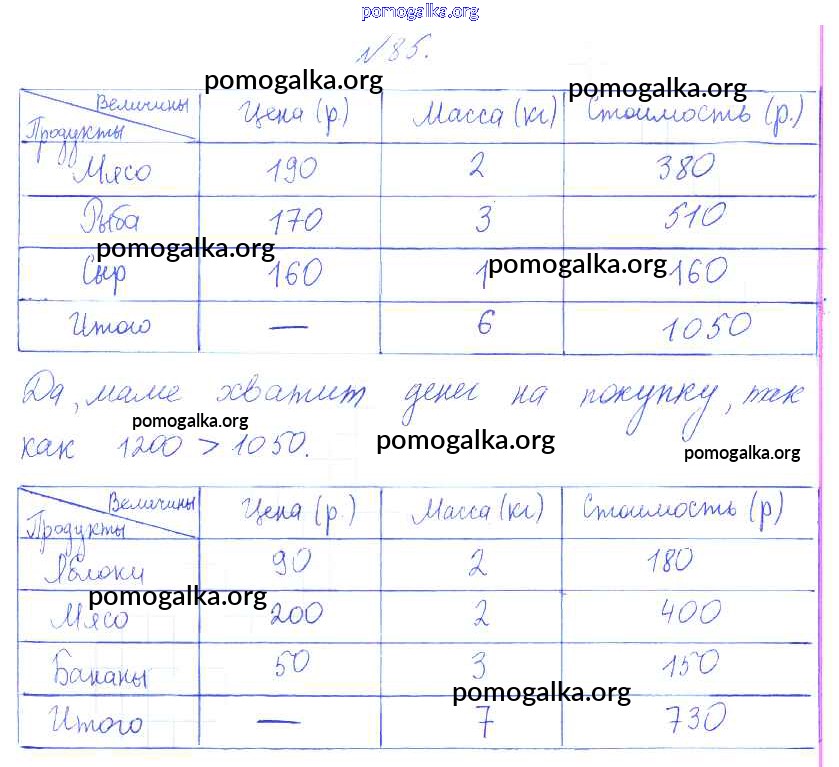 pomogalka.org
№85.
pomogalka.org pomogalka.org
Величины Цена (р.) Масса (кг) Стоимость (р.)
Продукты
Мясо 190 2 380
Рыба 170 3 510
pomogalka.org pomogalka.org
Сыр 160 1 160
Итого — 6 1050
Да, маме хватит денег на покупку, так
pomogalka.org pomogalka.org pomogalka.org
как 1200 > 1050.
Величины Цена (р.) Масса (кг) Стоимость (р)
Продукты
Яблоки 90 2 180
pomogalka.org
Мясо 200 2 400
Бананы 50 3 150
pomogalka.org
Итого — 7 730